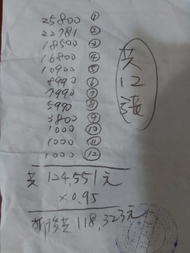 25800 ①
22781 ②
18500 ③
16800 ④
10900 ⑤
8990 ⑥
7990 ⑦
5990 ⑧
3800 ⑨
1000 ⑩
1000 ⑪
1000 ⑫
共12張
共 124,551元
×0.95
118,323元